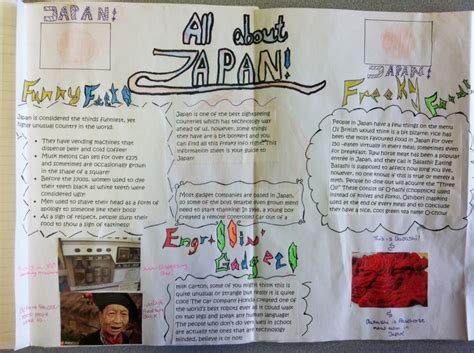 JAPAN!
All about
JAPAN!
JAPAN!
Funny Facts
Japan is considered the thirds funniest, yet
higher unusual country in the world.
They have vending machines that
dispense beer and cold coffee!
Musk melons can sell for over £275
and sometimes are occasionally grown
in the shape of a square!
Before the 1700s, women used to dye
their teeth black as white teeth were
considered ugly!
Men used to shave their head as a form of
apology to someone like their boss!
As a sign of respect, people slurp their
food to show a sign of tastiness!
Japan is one of the best sightseeing
countries which has technology way
ahead of us, however, some things
they have are a bit bonkers and you
can find all this freaky info right. This
information sheet is your guide to
Japan!
Freaky
Japan have a few things on the menu
Us British would think is a bit bizarre. Rice has
been the most favoured food in Japan for over
virtually everything, sometimes even
breakfast. Raw horse meat has been a popular
entrée in Japan, and they call it Basashi! Eating
Basashi is supposed to affect how long you live,
however, no one knows if this is true or merely a
cream. People to dine will acquire the "Three
Os" These consist of O-hashi (chopsticks used
instead of knives and forks), Oshibori (napkins
used at the end of every meal and to conclude
they have a nice, cool green tea name O-cha)!
Most gadget companies are based in Japan,
so some of the best desirable games grown men
need to start manning! In 1984, a young boy
created a remote controlled car out of a
Engrossin'
Gadgets!
milk carton; some of you might think this is
quite unusual or strange but really it is quite
cool! The Car Company Honda created one of
the world's best robots ever as it could walk
on two legs and speak any human language!
The people who don't do very well in school
are actually the ones that are technology
minded, believe it or not!
This is Basashi!